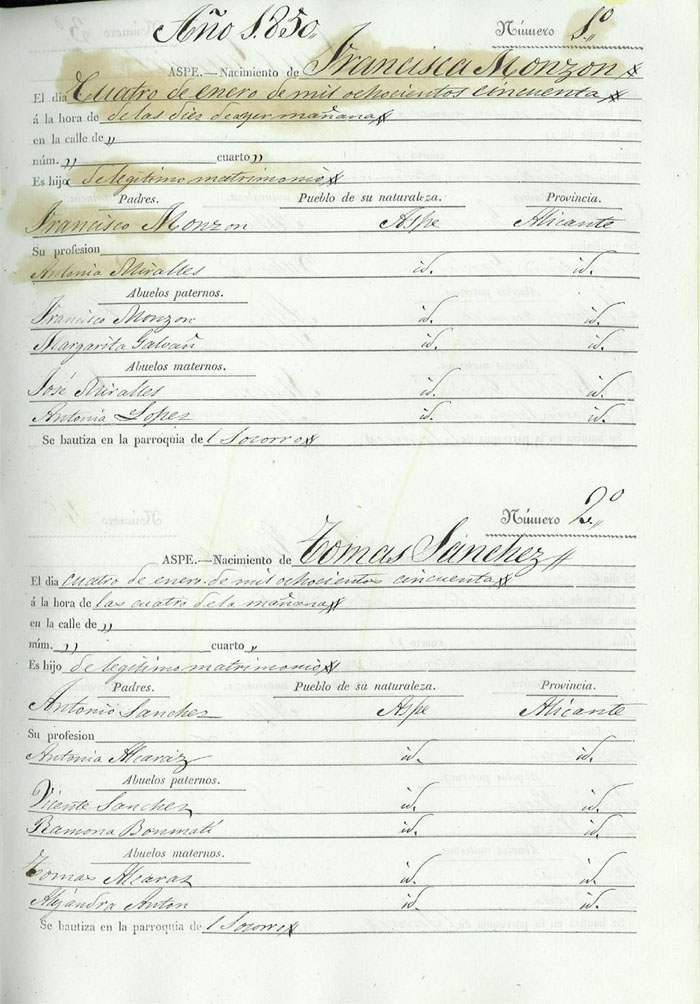 Año 1.850.
Número 1.º
ASPE.—Nacimiento de Francisca Monzon
El dia Cuatro de enero de mil ochocientos cincuenta
á la hora de las diez de ayer mañana
en la calle de „
núm. „ cuarto „
Es hija de legítimo matrimonio
Padres. Pueblo de su naturaleza. Provincia.
Francisco Monzon Aspe Alicante
Su profesion
Antonia Miralles id. id.
Abuelos paternos.
Francisco Monzon id. id.
Margarita Galvañ id. id.
Abuelos maternos.
José Miralles id. id.
Antonia Lopez id. id.
Se bautiza en la parroquia del Socorro
Número 2.º
ASPE.—Nacimiento de Tomas Sanchez
El dia cuatro de enero de mil ochocientos cincuenta
á la hora de las cuatro de la mañana
en la calle de „
núm. „ cuarto „
Es hijo de legítimo matrimonio
Padres. Pueblo de su naturaleza. Provincia.
Antonio Sanchez Aspe Alicante
Su profesion
Antonia Alcaraz id. id.
Abuelos paternos.
Vicente Sanchez id. id.
Ramona Bonmatí id. id.
Abuelos maternos.
Tomas Alcaraz id. id.
Alejandra Anton id. id.
Se bautiza en la parroquia del Socorro